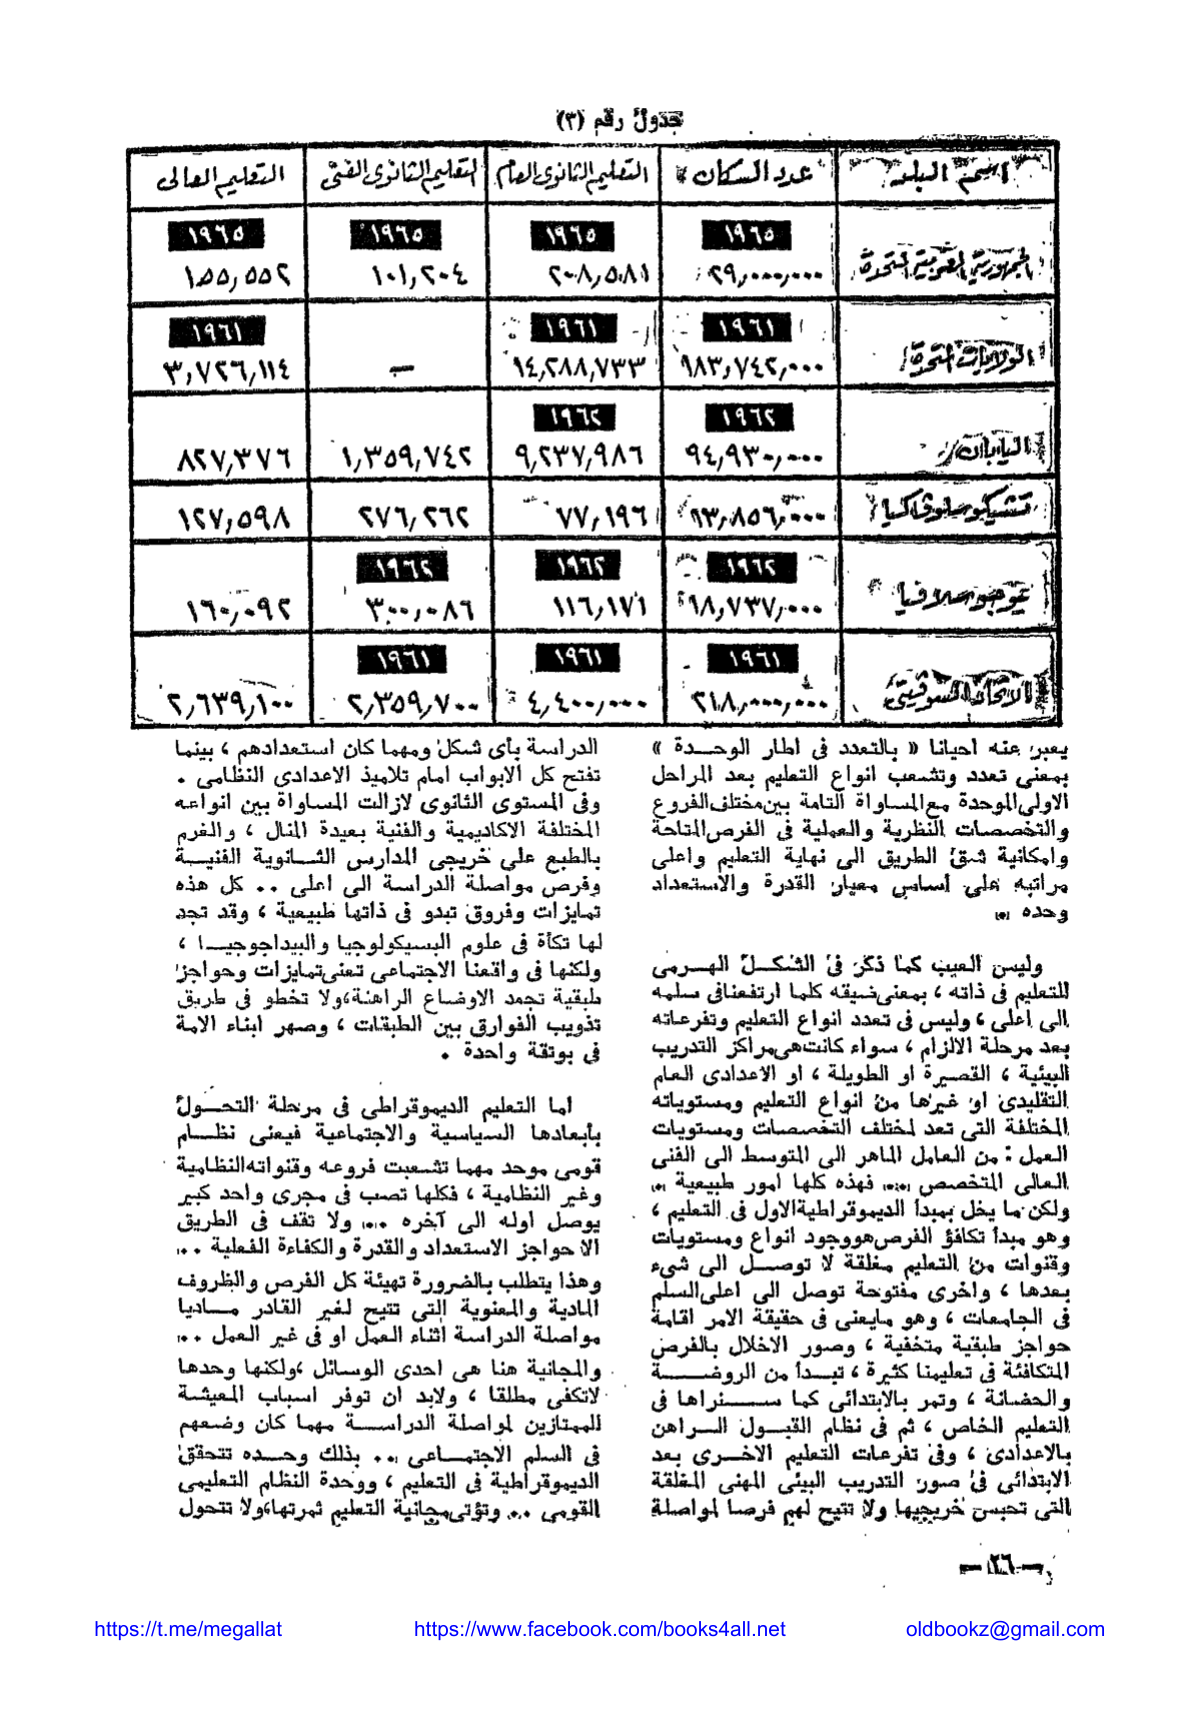 جدول رقم (٣)
اسم البلد عدد السكان التعليم الثانوى العام التعليم الثانوى الفنى التعليم العالى
١٩٦٥ ١٩٦٥ ١٩٦٥ ١٩٦٥
الجمهورية العربية المتحدة ٢٩,٠٠٠,٠٠٠ ٢٠٨,٥٨١ ١٠١,٢٠٤ ١٥٥,٥٥٢
١٩٦١ ١٩٦١ ١٩٦١
الولايات المتحدة ١٨٣,٧٤٢,٠٠٠ ١٤,٢٨٨,٧٣٣ — ٣,٧٢٦,١١٤
١٩٦٢ ١٩٦٢
اليابان ٩٤,٩٣٠,٠٠٠ ٩,٢٣٧,٩٨٦ ١,٣٥٩,٧٤٢ ٨٢٧,٣٧٦
تشيكوسلوفاكيا ١٣,٨٥٦,٠٠٠ ٧٧,١٩٦ ٢٧٦,٢٦٢ ١٢٧,٥٩٨
١٩٦٢ ١٩٦٢ ١٩٦٢
يوجوسلافيا ١٨,٧٣٧,٠٠٠ ١١٦,١٧١ ٣٠٠,٠٨٦ ١٦٠,٠٩٢
١٩٦١ ١٩٦١ ١٩٦١
الاتحاد السوفيتى ٢١٨,٠٠٠,٠٠٠ ٤,٤٠٠,٠٠٠ ٢,٣٥٩,٧٠٠ ٢,٦٣٩,١٠٠
يعبر عنه احيانا « بالتعدد فى اطار الوحدة »
بمعنى تعدد وتشعب انواع التعليم بعد المراحل
الاولى الموحدة مع المساواة التامة بين مختلف الفروع
والتخصصات النظرية والعملية فى الفرص المتاحة
وامكانية شق الطريق الى نهاية التعليم واعلى
مراتبه على أساس معيار القدرة والاستعداد
وحده .
وليس العيب كما ذكر فى الشكل الهرمى
للتعليم فى ذاته ، بمعنى ضيقه كلما ارتفعنا فى سلمه
الى اعلى ، وليس فى تعدد انواع التعليم وتفرعاته
بعد مرحلة الالزام ، سواء كانت هى مراكز التدريب
البيئية ، القصيرة او الطويلة ، او الاعدادى العام
التقليدى او غيرها من انواع التعليم ومستوياته
المختلفة التى تعد لمختلف التخصصات ومستويات
العمل : من العامل الماهر الى المتوسط الى الفنى
العالى المتخصص ... فهذه كلها امور طبيعية .
ولكن ما يخل بمبدأ الديموقراطية الاول فى التعليم ،
وهو مبدأ تكافؤ الفرص هو وجود انواع ومستويات
وقنوات من التعليم مغلقة لا توصل الى شىء
بعدها ، واخرى مفتوحة توصل الى اعلى السلم
فى الجامعات ، وهو مايعنى فى حقيقة الامر اقامة
حواجز طبقية متخفية ، وصور الاخلال بالفرص
المتكافئة فى تعليمنا كثيرة ، تبدأ من الروضة
والحضانة ، وتمر بالابتدائى كما سنراها فى
التعليم الخاص ، ثم فى نظام القبول الراهن
بالاعدادى ، وفى تفرعات التعليم الاخرى بعد
الابتدائى فى صور التدريب البيئى المهنى المغلقة
التى تحبس خريجيها ولا تتيح لهم فرصا لمواصلة
الدراسة بأى شكل ومهما كان استعدادهم ، بينما
تفتح كل الابواب امام تلاميذ الاعدادى النظامى .
وفى المستوى الثانوى لازالت المساواة بين انواعه
المختلفة الاكاديمية والفنية بعيدة المنال ، والغرم
بالطبع على خريجى المدارس الثانوية الفنية
وفرص مواصلة الدراسة الى اعلى .. كل هذه
تمايزات وفروق تبدو فى ذاتها طبيعية ، وقد تجد
لها تكأة فى علوم البسيكولوجيا والبيداجوجيا ،
ولكنها فى واقعنا الاجتماعى تعنى تمايزات وحواجز
طبقية تجمد الاوضاع الراهنة ، ولا تخطو فى طريق
تذويب الفوارق بين الطبقات ، وصهر ابناء الامة
فى بوتقة واحدة .
اما التعليم الديموقراطى فى مرحلة التحول
بأبعادها السياسية والاجتماعية فيعنى نظام
قومى موحد مهما تشعبت فروعه وقنواته النظامية
وغير النظامية ، فكلها تصب فى مجرى واحد كبير
يوصل اوله الى آخره ... ولا تقف فى الطريق
الا حواجز الاستعداد والقدرة والكفاءة الفعلية ..
وهذا يتطلب بالضرورة تهيئة كل الفرص والظروف
المادية والمعنوية التى تتيح لغير القادر ماديا
مواصلة الدراسة اثناء العمل او فى غير العمل ..
والمجانية هنا هى احدى الوسائل ، ولكنها وحدها
لاتكفى مطلقا ، ولابد ان توفر اسباب المعيشة
للممتازين لمواصلة الدراسة مهما كان وضعهم
فى السلم الاجتماعى ... بذلك وحده تتحقق
الديموقراطية فى التعليم ، ووحدة النظام التعليمى
القومى ... وتؤتى مجانية التعليم ثمرتها ، ولا تتحول
— ٢٦ —
https://t.me/megallat https://www.facebook.com/books4all.net oldbookz@gmail.com